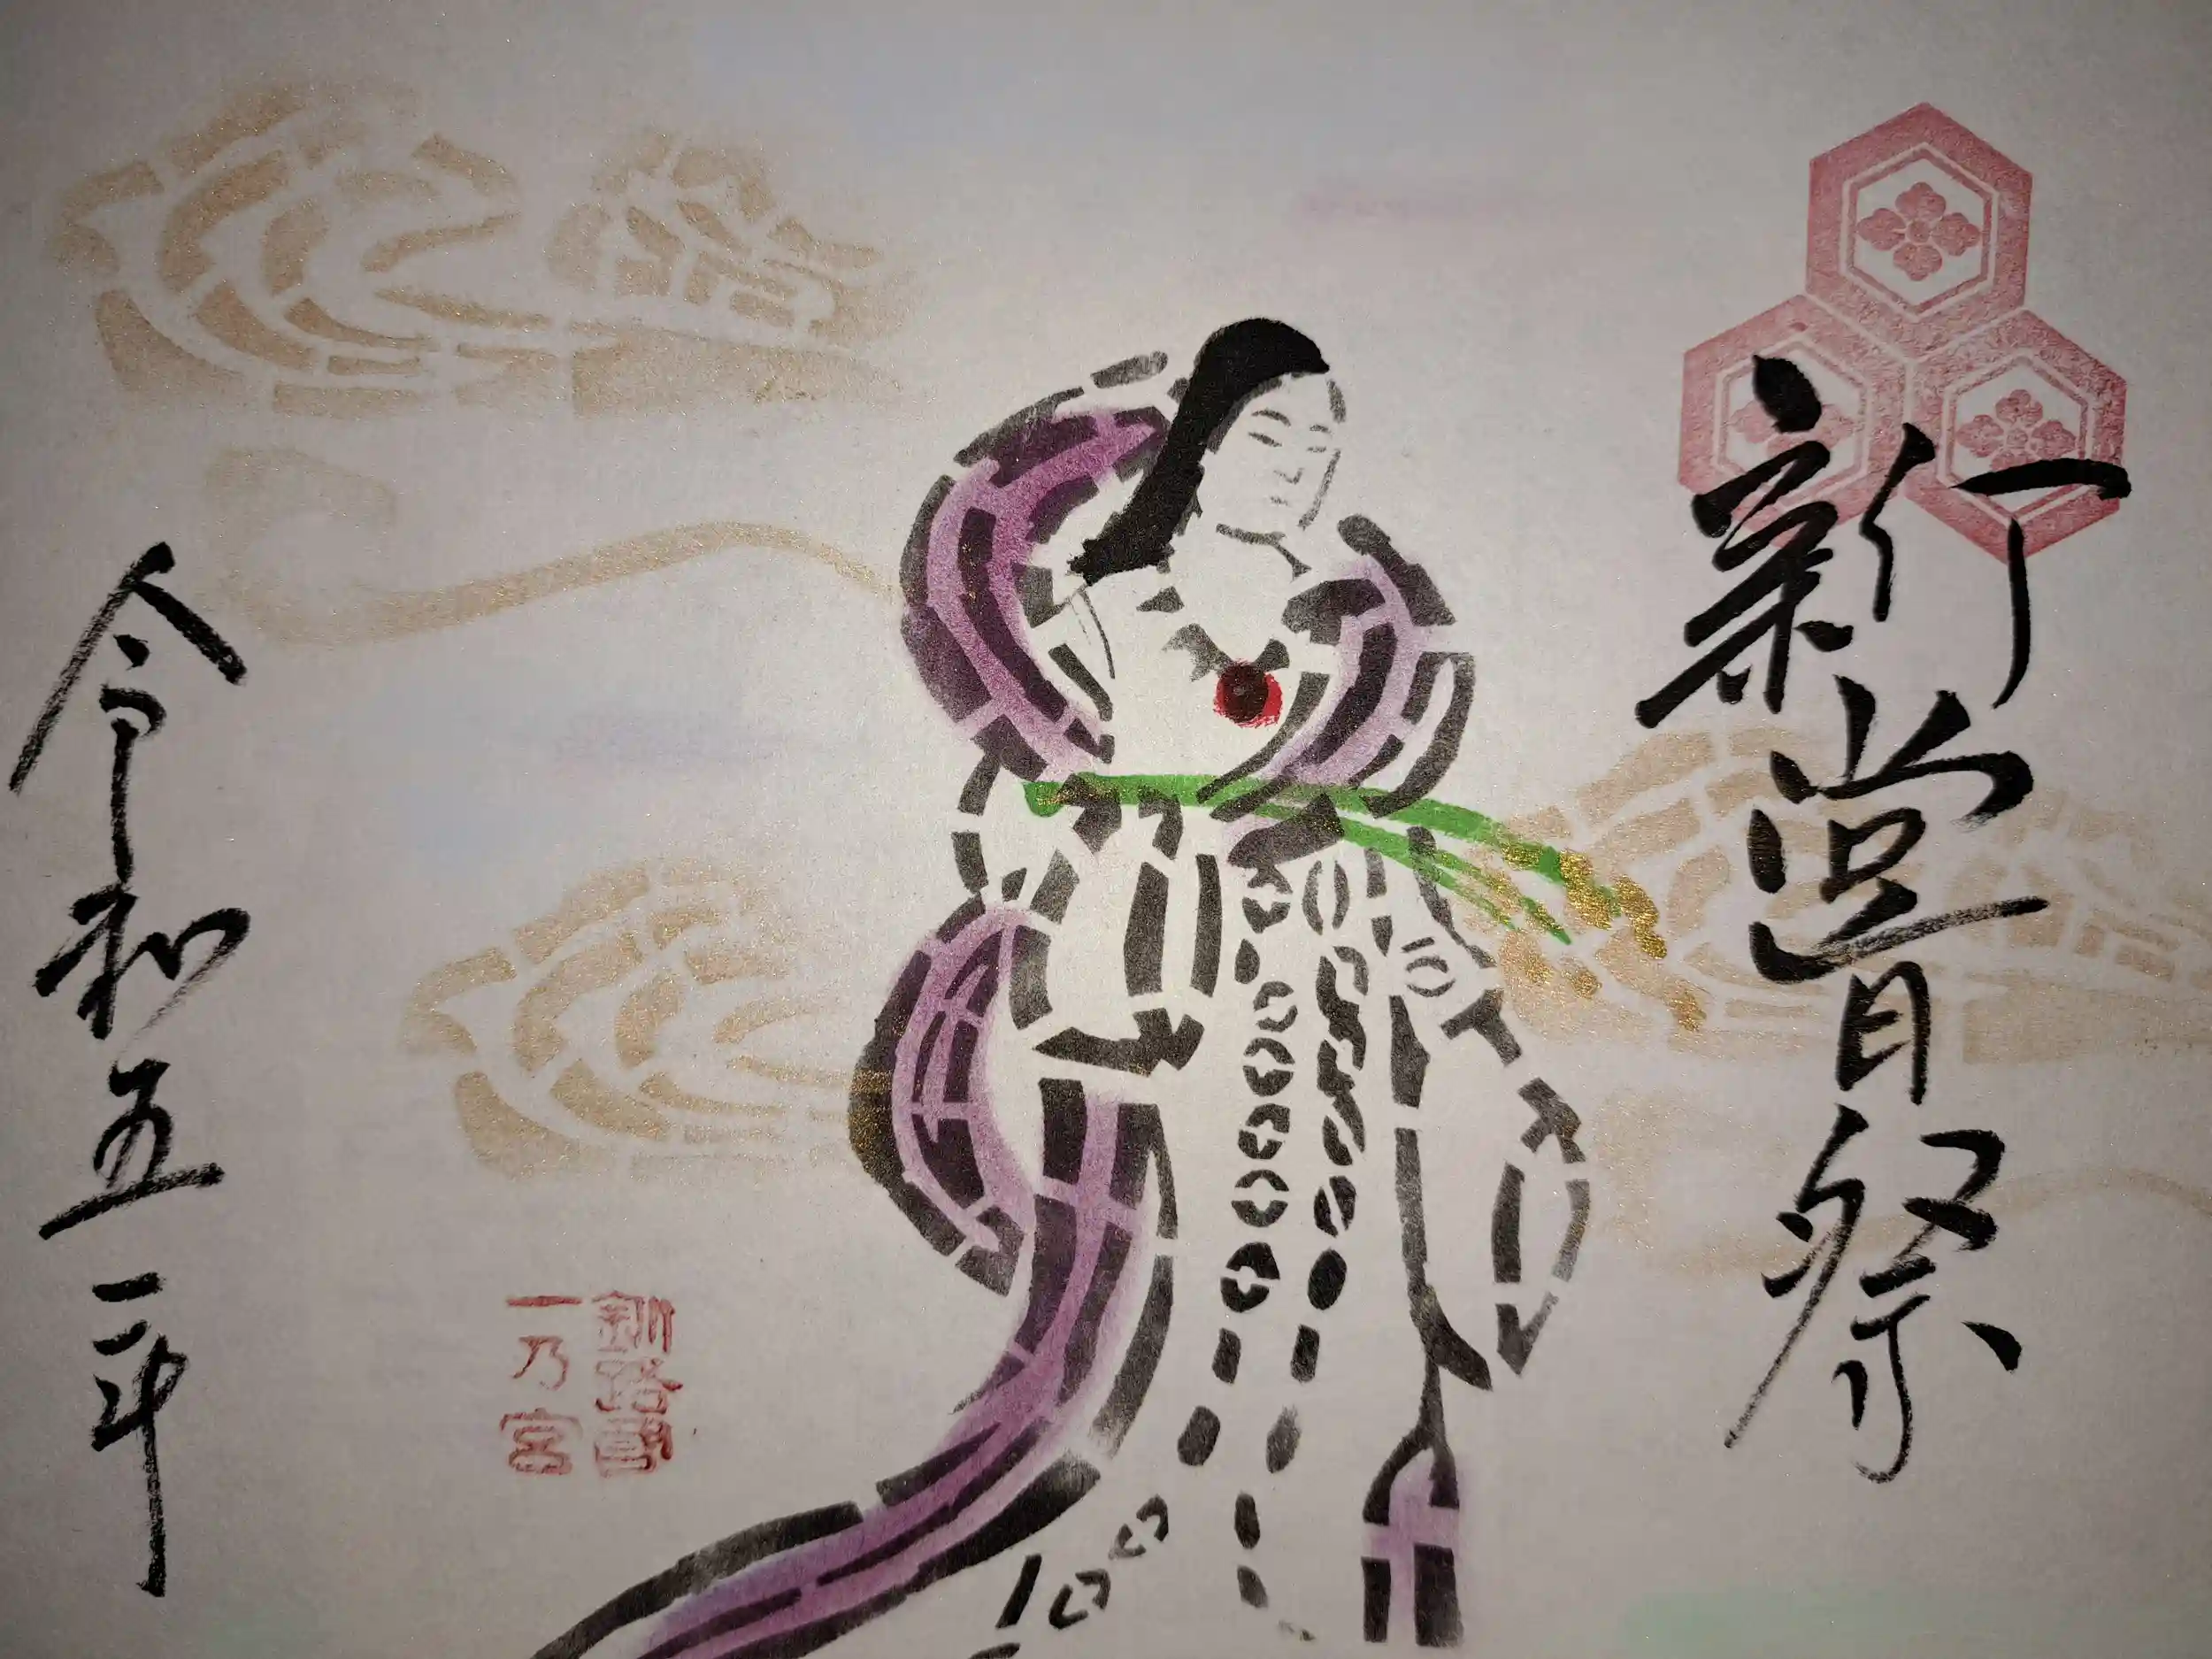 新嘗祭
釧路國
一乃宮
令和五年